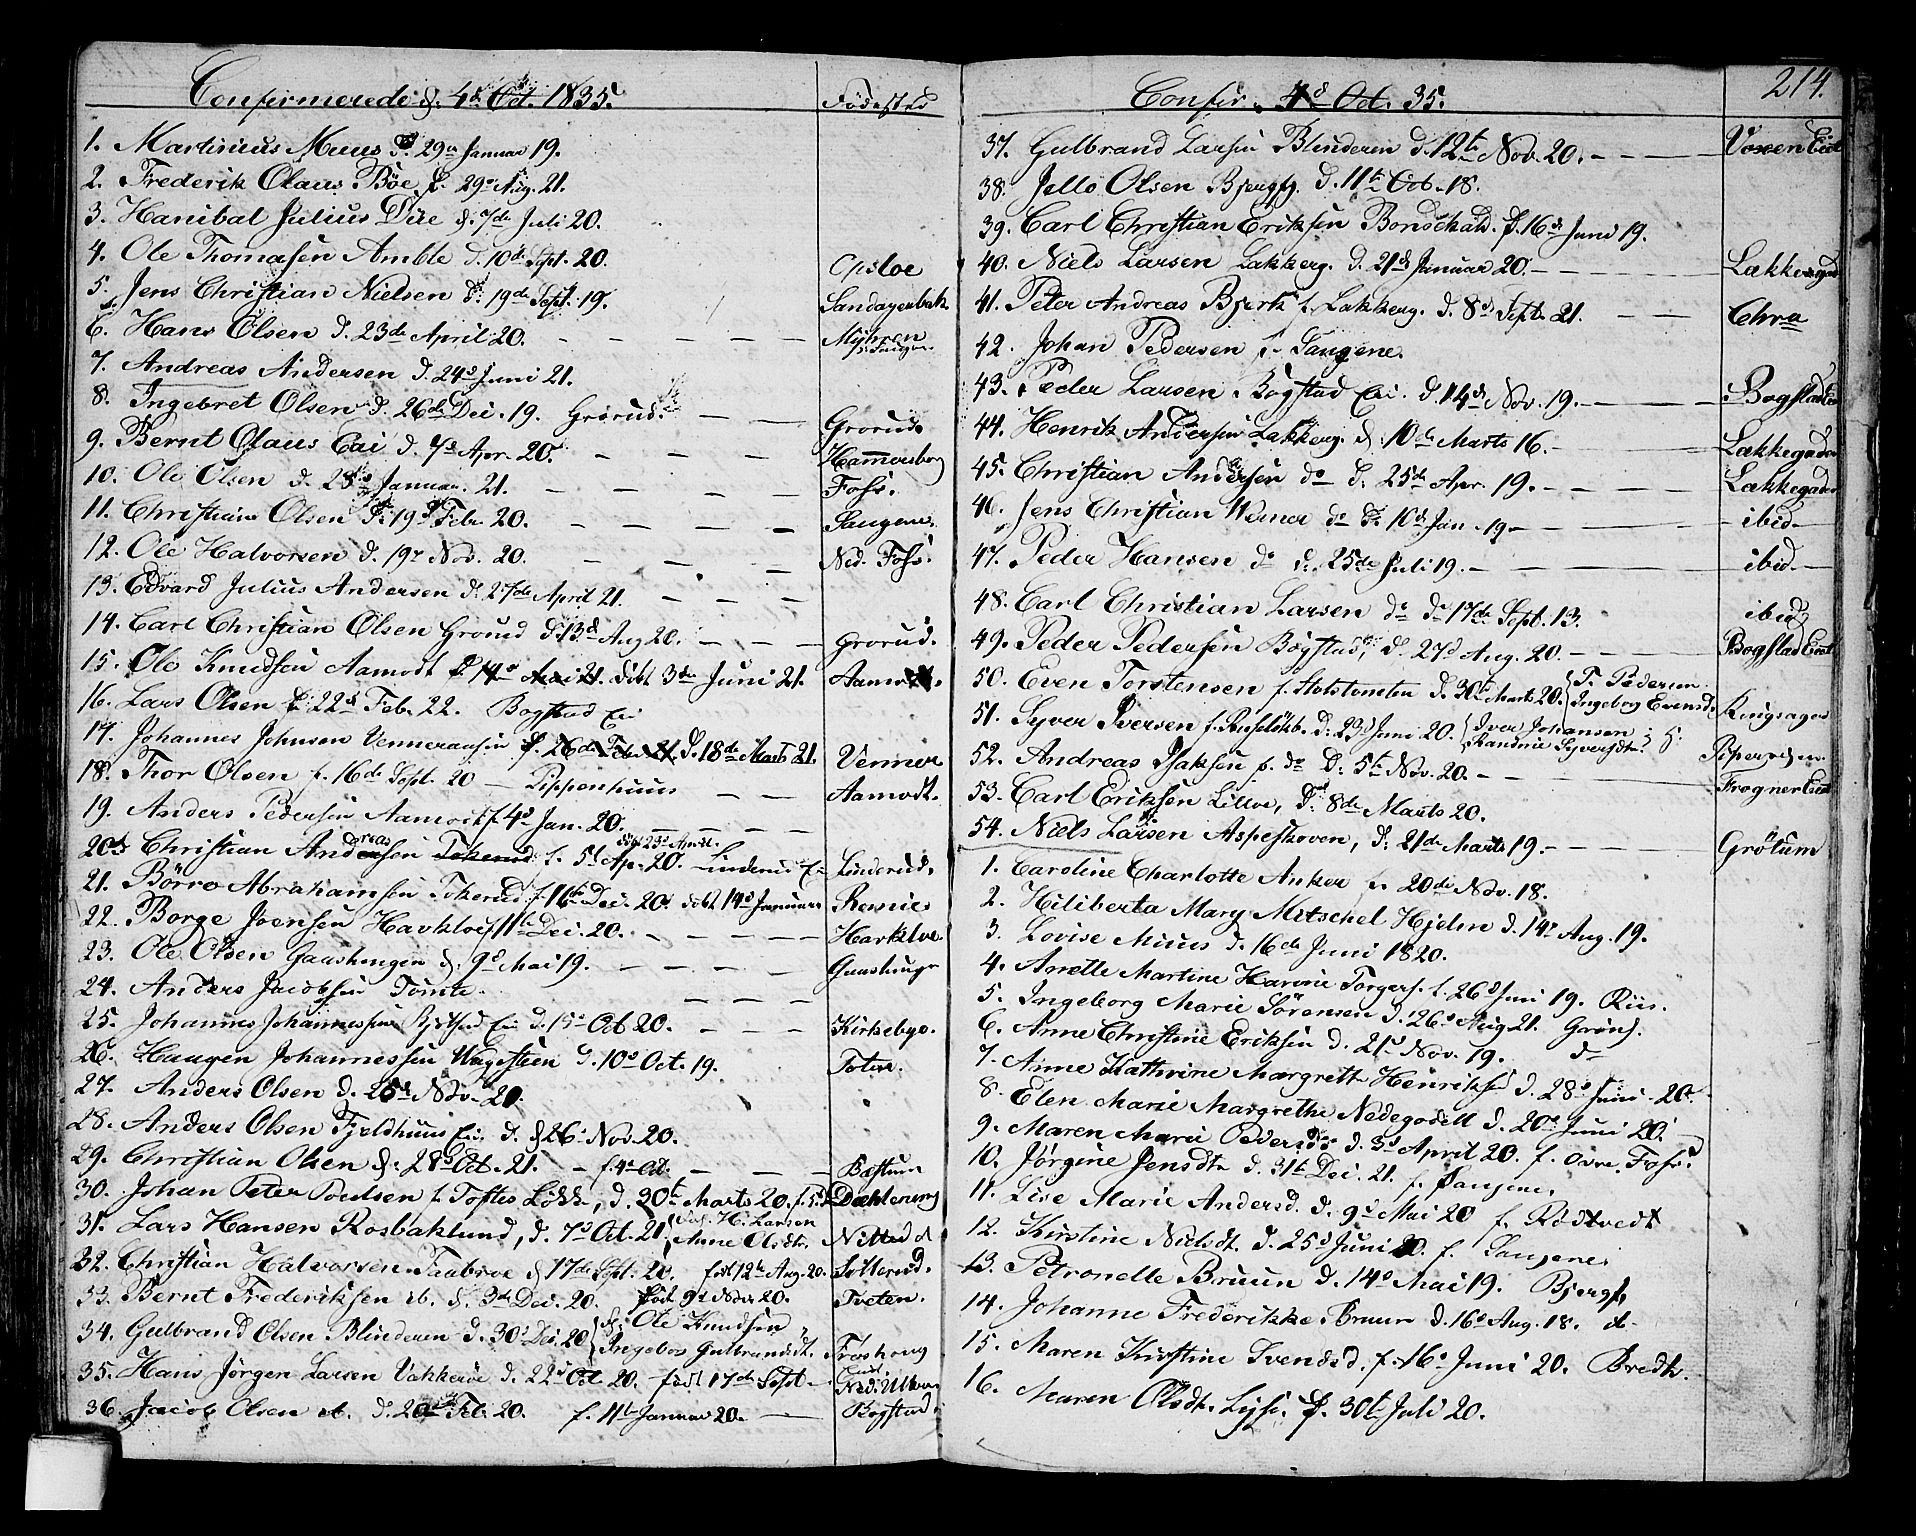 Confirmerede d. 4d Oct. 1835. Födested
1. Martinius Muus d. 29n Januar 19.
2. Frederik Olaus Böe f. 29 Aug. 21.
3. Hanibal Julius Due d. 7de Juli 20.
4. Ole Thomasen Amble d. 10de Sept. 20. Opsloe
5. Jens Christian Nielsen d. 19de Sept. 19. Sandagerbak
6. Hans Olsen d. 23de April 20. Myhren
7. Andreas Andersen d. 24d Juni 21.
8. Ingebret Olsen d. 26de Dec. 19. Grorud Grorud
9. Bernt Olaus Cai d. 7d Apr. 20. Hammersborg
10. Ole Olsen d. 28 Januar. 21. Foss.
11. Christian Olsen d. 19d Febr. 20. Saugene.
12. Ole Halvorsen d. 19 Nov. 20. Ned. Foss.
13. Edvard Julius Andersen d. 27de April 21.
14. Carl Christian Olsen Grorud d. 13d Aug 20. Grorud.
15. Ole Knudsen Aamodt d. 14d Mai 21. döbt 3de Juni 21. Aamodt.
16. Lars Olsen d. 22d Feb. 22. Bogstad Ei
17. Johannes Johnsen Vennerausen f. 26de Feb. 21. d. 18de Marts 21. Venner
18. Thor Olsen f. 16de Sept. 20 Pippenhuus Aamodt.
19. Anders Pedersen Aamodt f. 4d Jan. 20.
20. Christian Andreasen Tokerud f. 5 Ap. 20. döbt 23d April. Linderud Ei Linderud.
21. Börre Abrahamsen Tokerud f. 16te Dec. 20. döbt 14d Januar Romie
22. Borge Joensen Havklve f. 11te Dec. 20. Harklve
23. Ole Olsen Gaashaugen d. 9d Mai 19. Gaashaugr
24. Anders Jacobsen Tomte.
25. Johannes Johannessen Ei d. 15d Oct 20. Kirkebye.
26. Haagen Johannessen d. 10d Oct. 19. Toten.
27. Anders Olsen d. 25d Nov. 20.
28. Anders Olsen Fjeldhuus Ei. d. 26 Nov. 20.
29. Christian Olsen d. 28d Oct. 21. f. 4d Oct. Bæstum
30. Johan Peter Poulsen f. Toftes Lökk, d. 30t Marts 20. Dæhlenung
31. Lars Hansen Rosbaklund, d. 7d Oct. 21. H. Larsen Anne Olsdtr. Nittedd
32. Christian Halvorsen Taabroe d. 17de Sept. 20. föd 12te Aug. 20. Solterud.
33. Bernt Frederiksen ib. d. 3de Dec. 20. föd. 9d Nov. 20. Tveten.
34. Gulbrand Olsen Blinderen d. 30d Dec. 20 Ole Knudsen Ingebor Gulbrandsdt.
35. Hans Jörgen Larsen Vækkeröe d. 22d Oct 20. födt 17de Sept Ned. Ullern
36. Jacob Olsen d. 20d Feb. 20. f. 11te Januar 20. Bogstad.
Confir. 4d Oct. 35. 214.
37. Gulbrand Larsen Blinderen d. 12te Nov. 20. Voxen Eiet
38. Jello Olsen Bjergfg. d. 11te Oct. 18.
39. Carl Christian Eriksen Bonsehald. d. 16d Juni 19.
40. Niels Larsen Lakkerg. d. 21d Januar 20. Lækkegad
41. Peter Andreas Bjerk f. Lakkerg. d. 8d Sept. 21. Chra
42. Johan Pedersen f. Saugene.
43. Peder Larsen Bogstad Ei. d. 14d Nov. 19. Bogstad Eiet
44. Henrik Andersen Lakkerg. d. 10de Marts 16. Lækkegaden
45. Christian Andersen do d. 25de Apr. 19. Lækkegaden
46. Jens Christian Werner do d. 10d Jan. 19 ibid.
47. Peder Hansen do d. 25de Juli 19. ibid.
48. Carl Christian Larsen do d. 17de Sept. 13. ibid
49. Peder Pedersen Bogstad, d. 27d Aug. 20. Bogstad Eiet
50. Even Torstensen f. Holstomten d. 30te Marts 20. T. Pedersen Ingeborg Evensd. Ringsager
51. Syver Iversen f. d. 23d Juni 20. Iver Johansen Randine Syversdt.
52. Andreas Isaksen f. do d. 5te Nov. 20. Pipervigen
53. Carl Eriksen Lilloe, d. 8de Marts 20. Frogner Eiet
54. Niels Larsen Aspeskoven, d. 21de Marts 19. Grötum
1. Caroline Charlotte Anker f. 20de Nov. 18.
2. Hiliberta Mary Mitschel Hjelm d. 14d Aug. 19.
3. Lovise Muus d. 16de Juni 1820.
4. Anette Martine Havine Torgers. f. 26d Juni 19. Riis.
5. Ingeborg Marie Sörensen d. 26d Aug 21. Grönl.
6. Anne Christine Eriksen d. 21d Nov. 19. do
7. Anne Kathrine Margrett Henriksd d. 28d Juni 20.
8. Elen Marie Margrethe Nedegodell d. 20d Juni 20.
9. Maren Marie Pedersd. d. 3d April 20. f. övre Foss.
10. Jörgine Jensdt. d. 31te Dec. 21. f. Saugene.
11. Lise Marie Andersd. d. 9d Mai 20 f. Rödtvedt
12. Kirstine Nielsdt. d. 25d Juni 20. f. Saugene.
13. Petronelle Bruun d. 14d Mai 19. Bjergf.
14. Johanne Frederikke Bruun d. 16d Aug. 18. do
15. Maren Kirstine Svendsd. f. 16d Juni 20. Bredts.
16. Maren Olsdt. Lysö. d. 30te Juli 20.